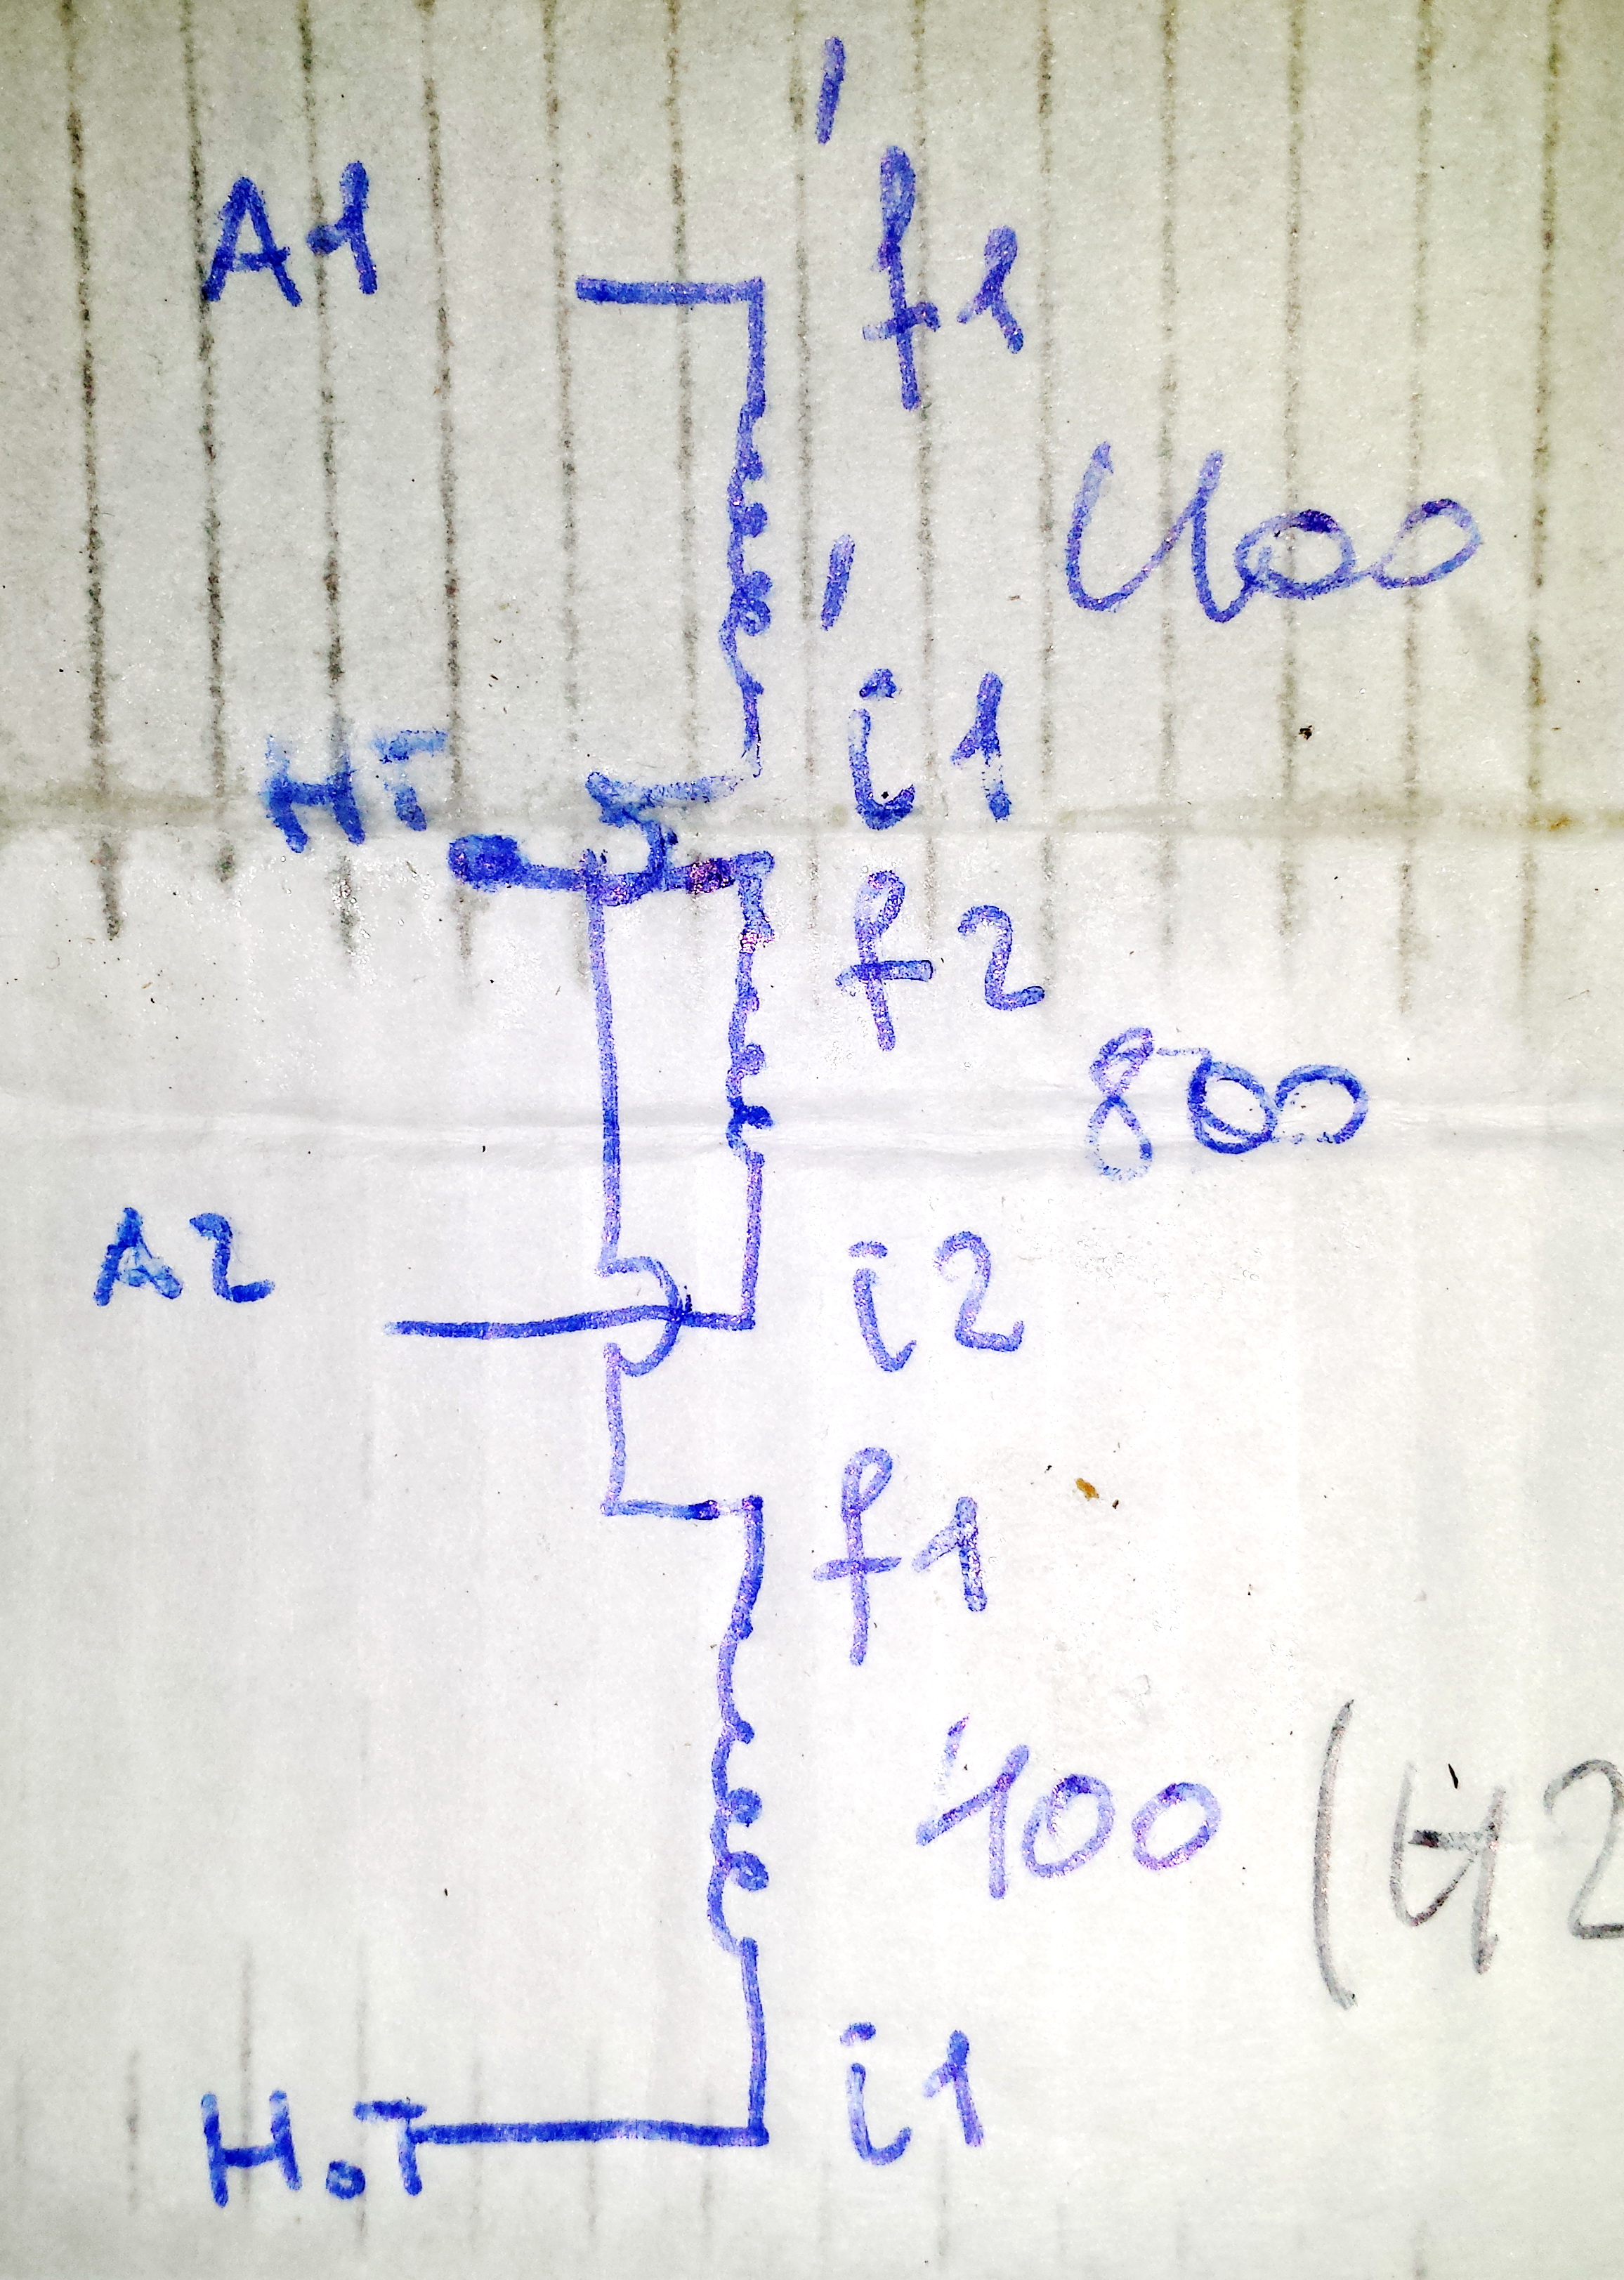 A1
f1
400
i1
HT
f2
800
A2
i2
f1
400 (42
i1
H.T